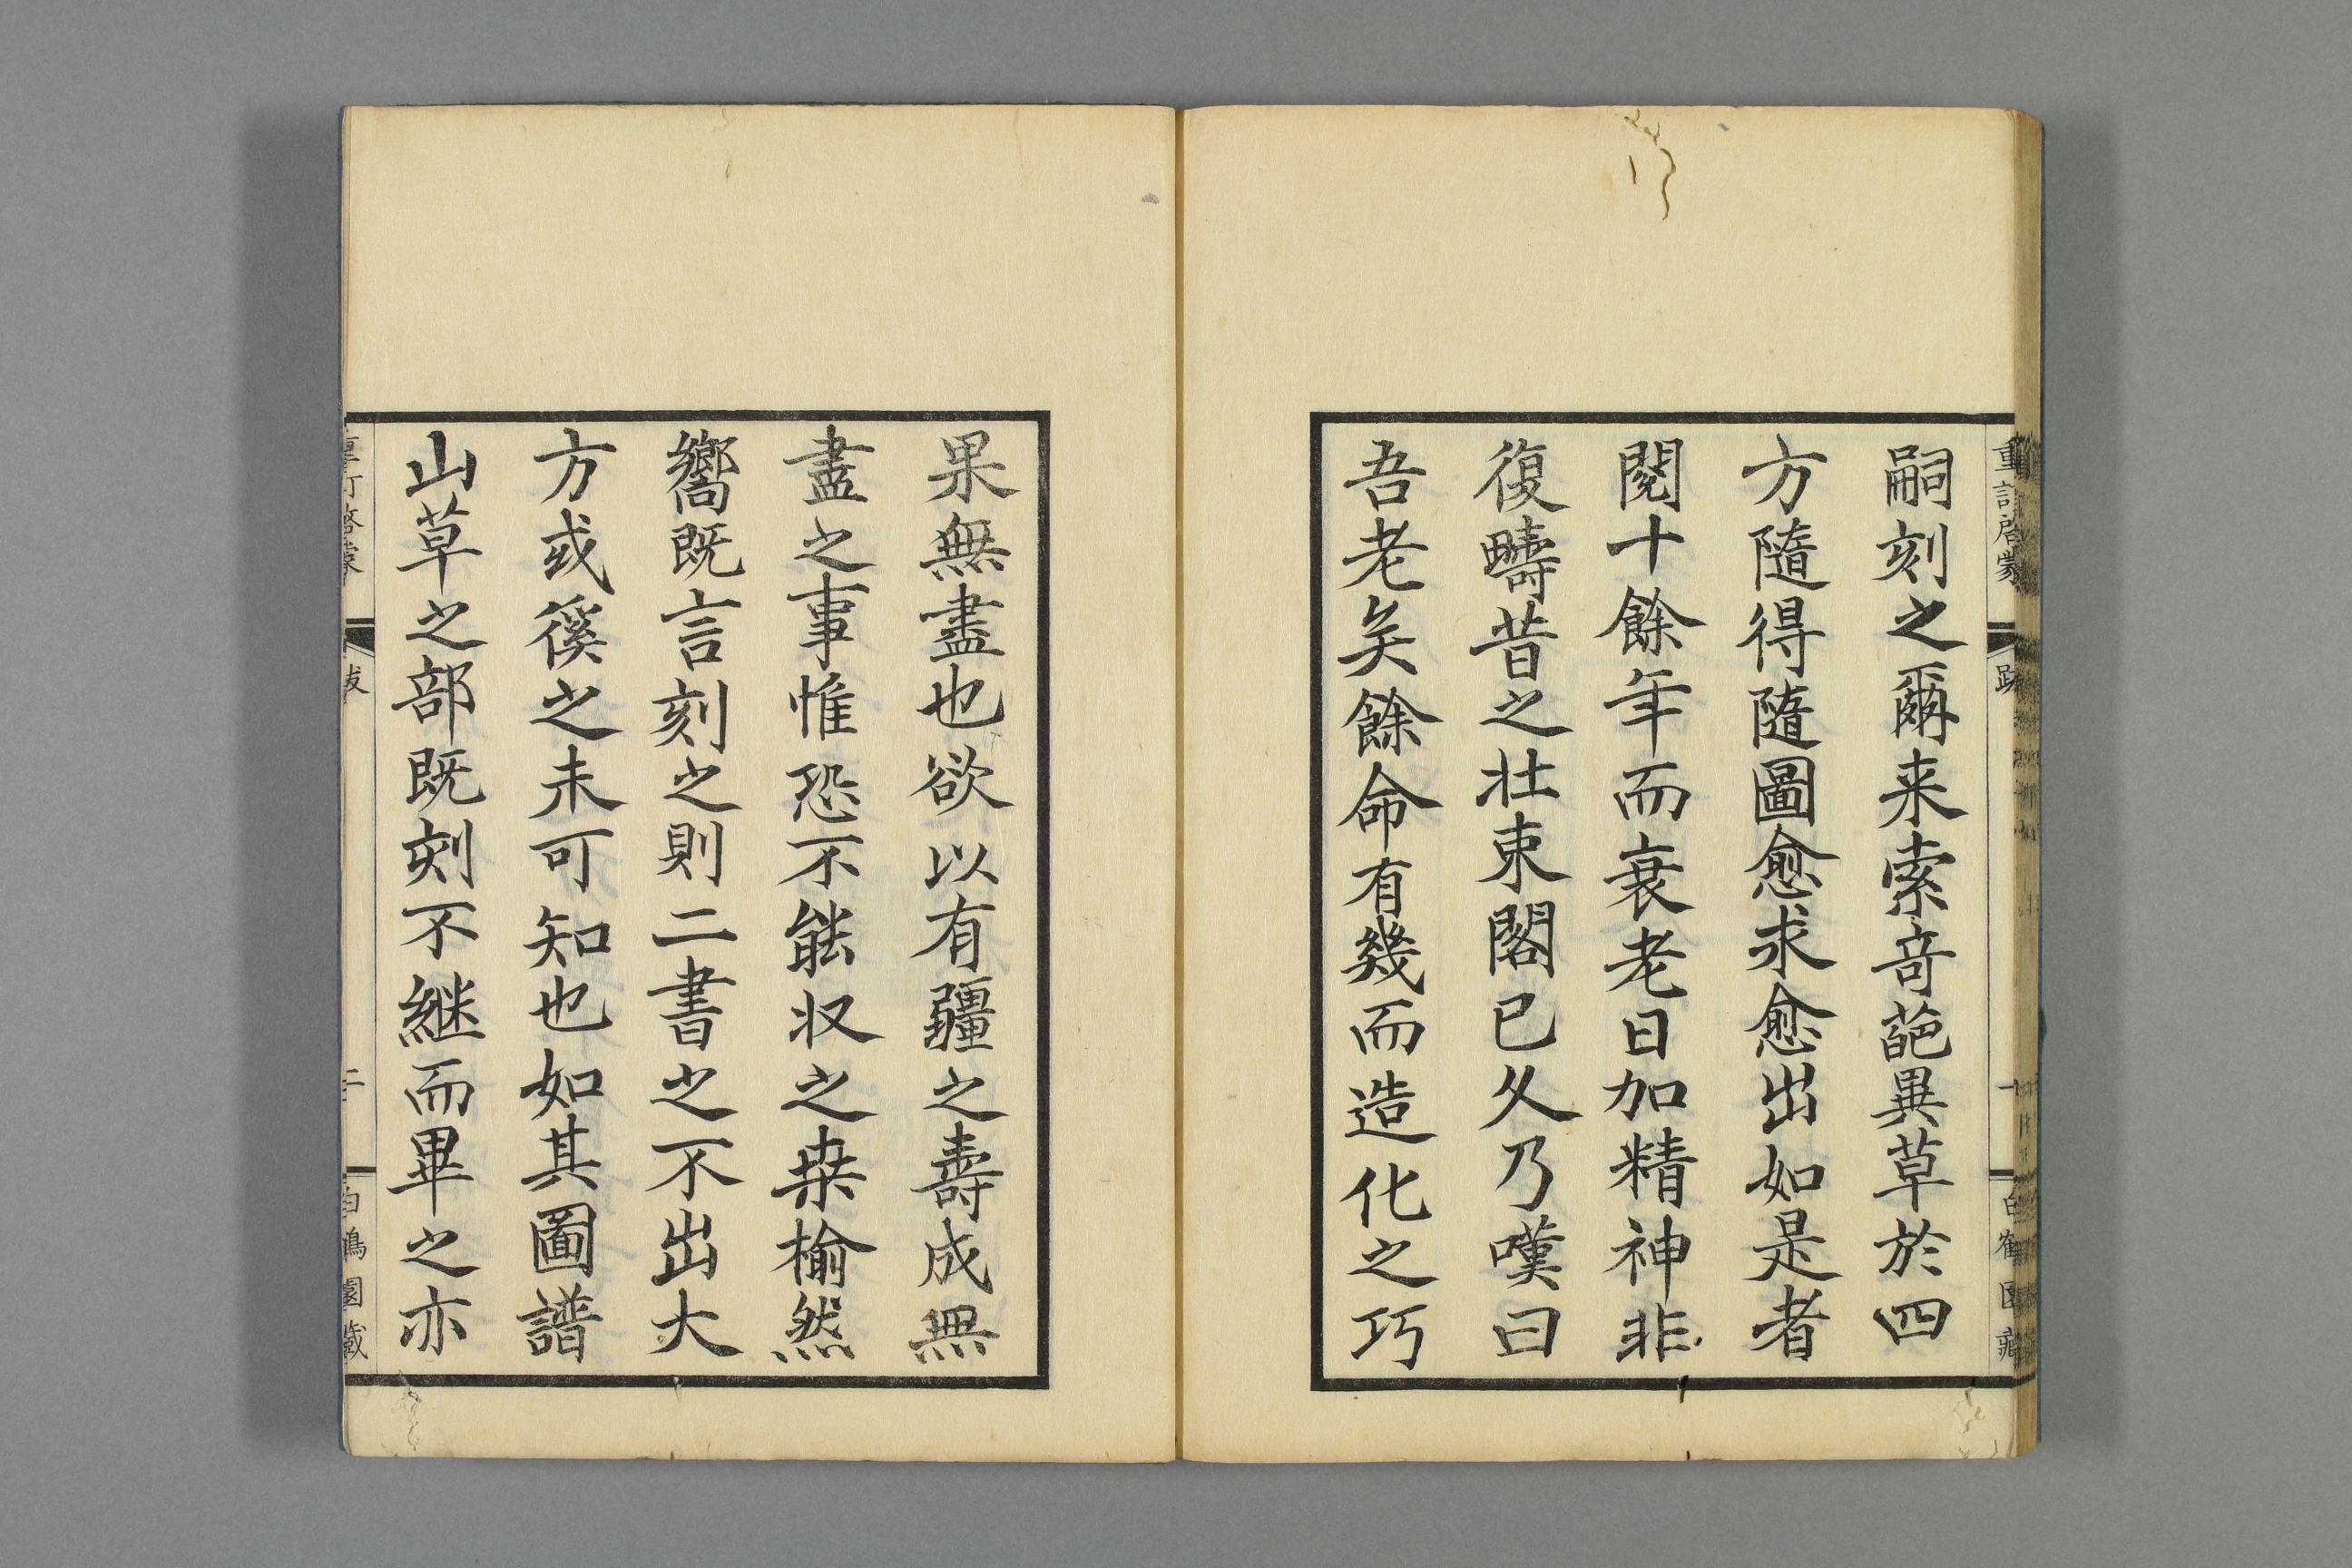 重訂啓蒙 跋 一
嗣刻之爾来索竒葩異草於四
方隨得隨圖愈求愈出如是者
閲十餘年而衰老日加精神非
復疇昔之壮束閣已久乃嘆曰
吾老矣餘命有幾而造化之巧
果無盡也欲以有疆之壽成無
盡之事惟恐不能収之桒楡然
嚮既言刻之則二書之不出大
方或徯之未可知也如其圖譜
山草之部既刻不継而畢之亦